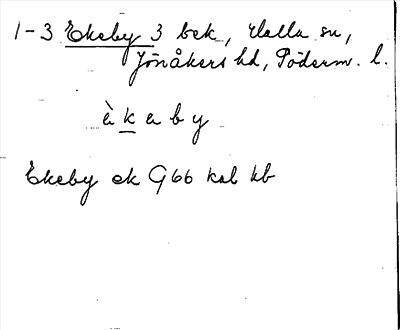 1-3 Ekeby 3 bek, Halla sn,
Jönåkers hd, Söderm. l.
è k e b y
Ekeby ek G66 kal kb